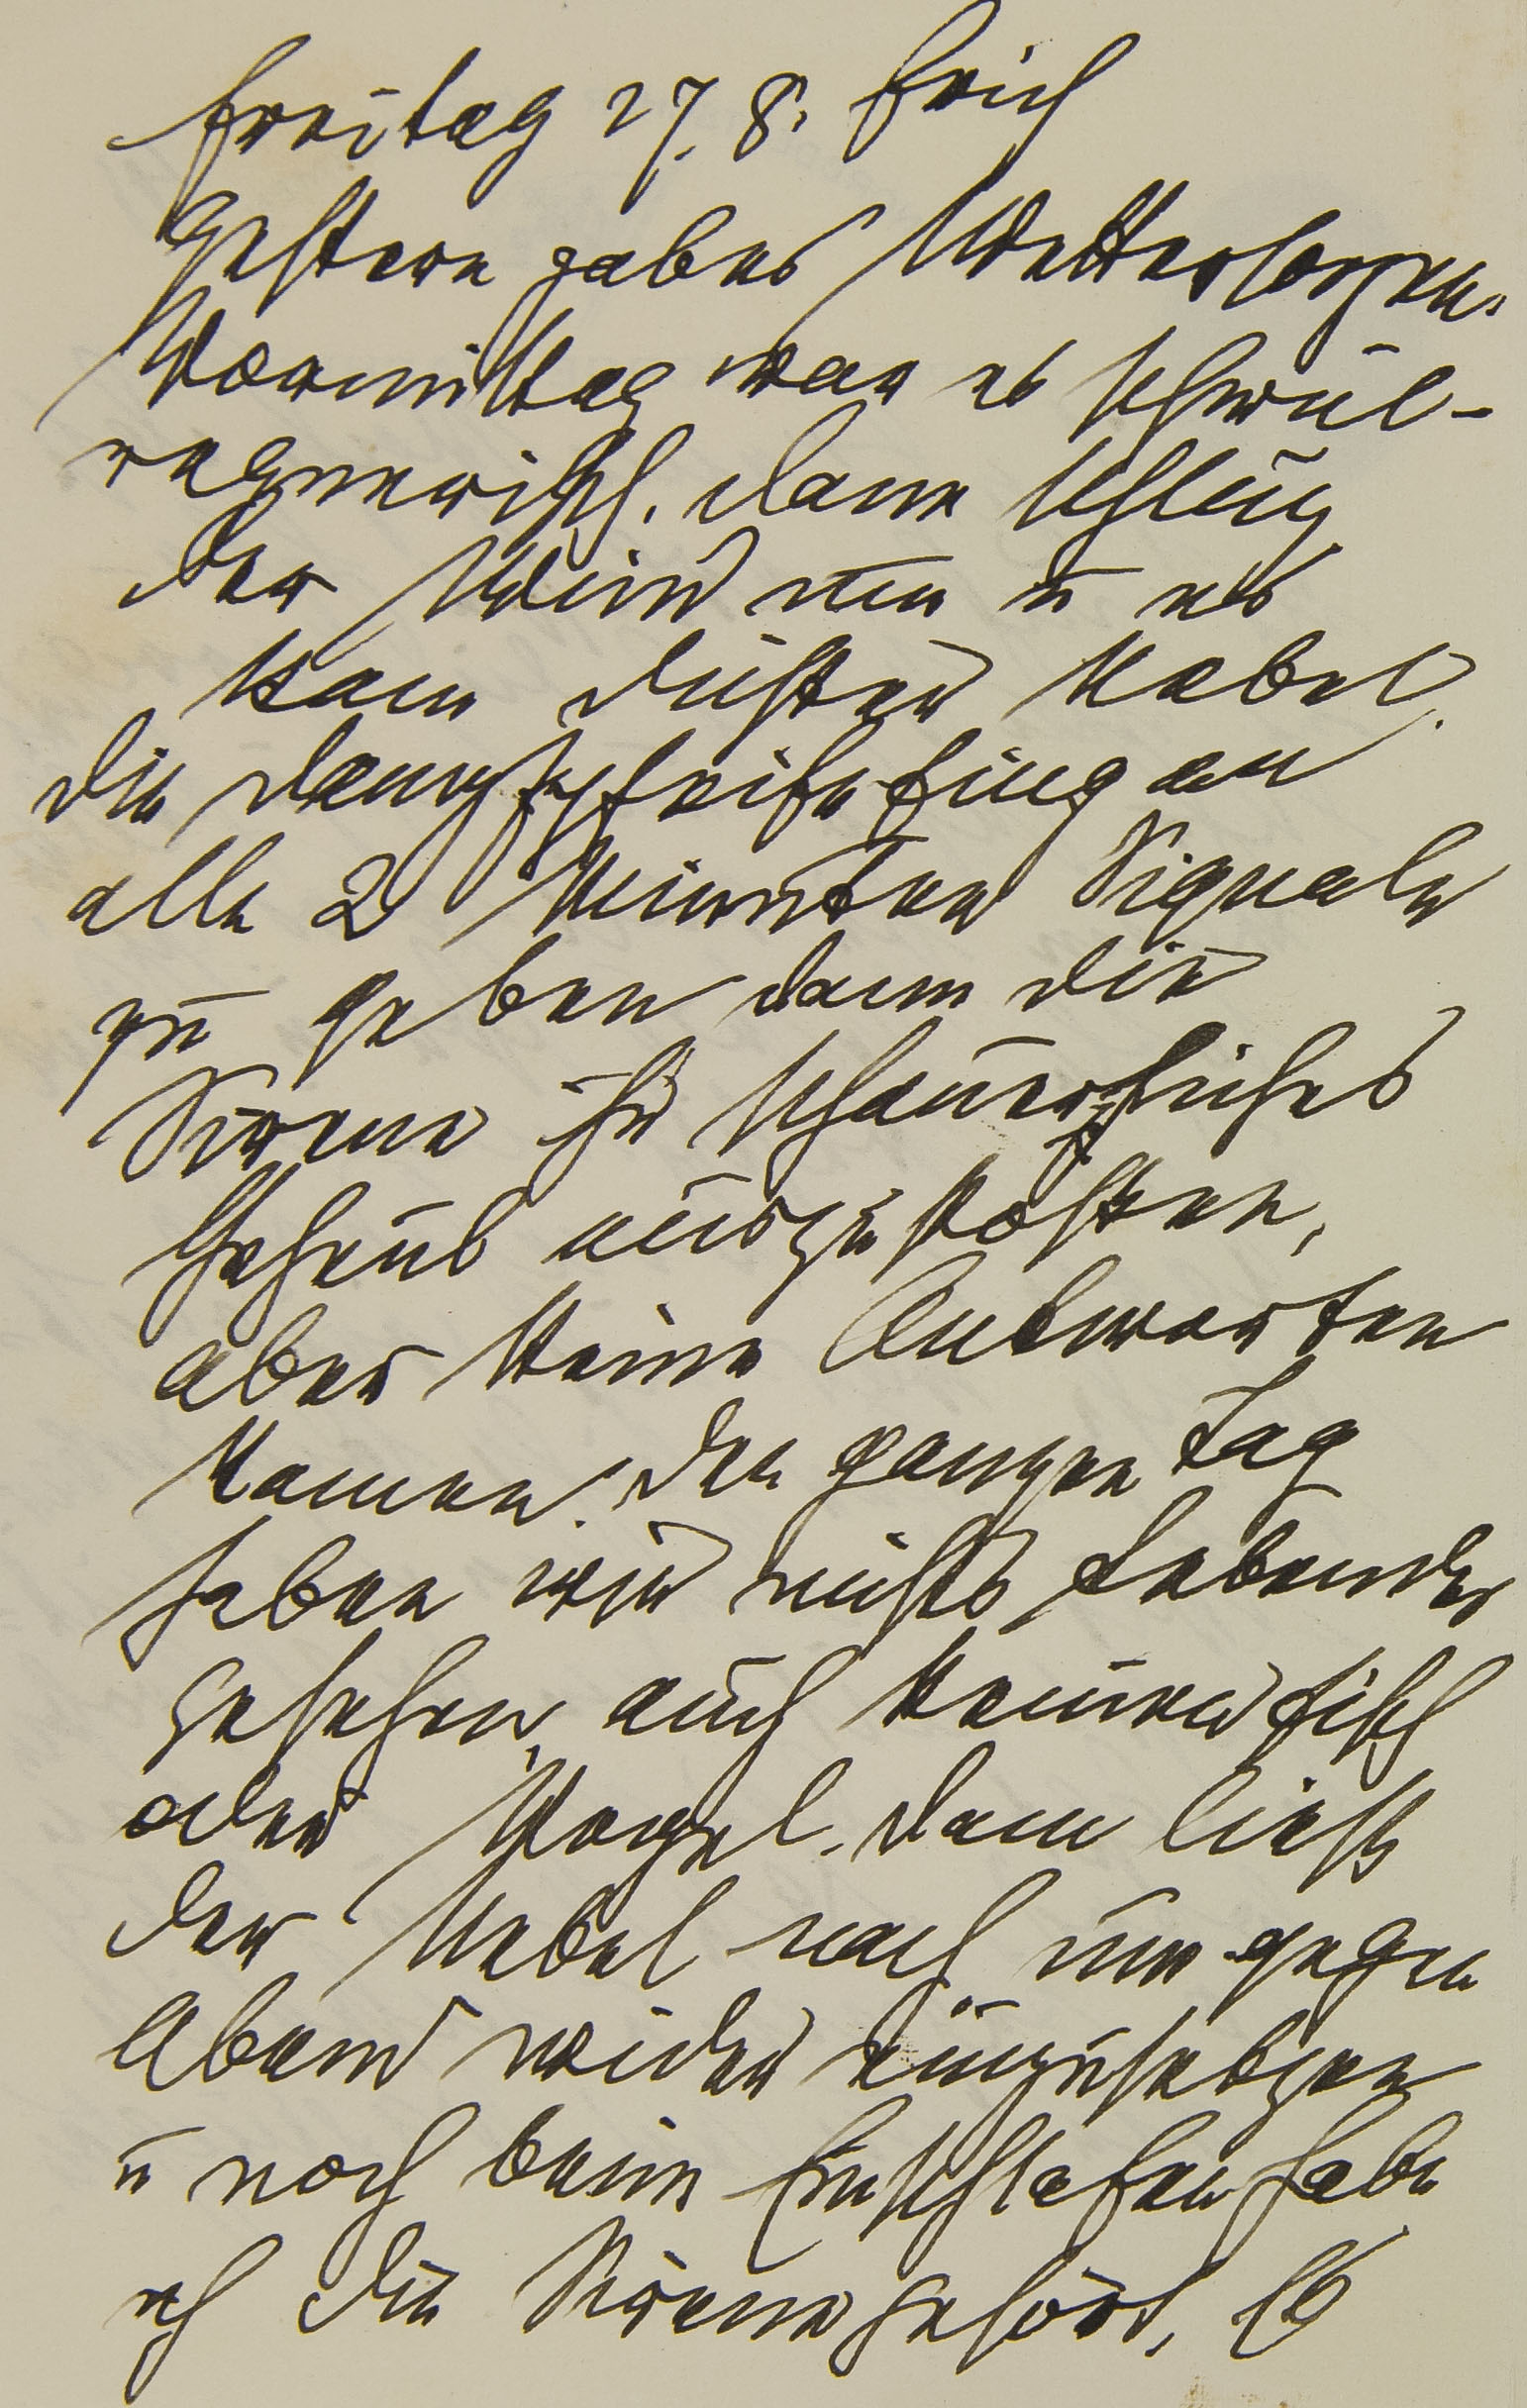 Freitag 27. 8. früh
Gestern gab es Wettersorgen.
Vormittag war es schwül-
regnerisch. Dann schlug
der Wind um u es
kam dichter Nebel.
Die Dampfpfeife fing an
alle 2 Minuten Signale
zu geben dann die
Sirene ihr schauerliches
Geheul auszustoßen,
aber keine Antworten
kamen. Den ganzen Tag
haben wir nichts Lebendes
gesehen, auch keinen Fisch
oder Vogel. Dann ließ
der Nebel nach um gegen
Abend wieder einzusetzen
u noch beim Einschlafen habe
ich die Sirene gehört. Es